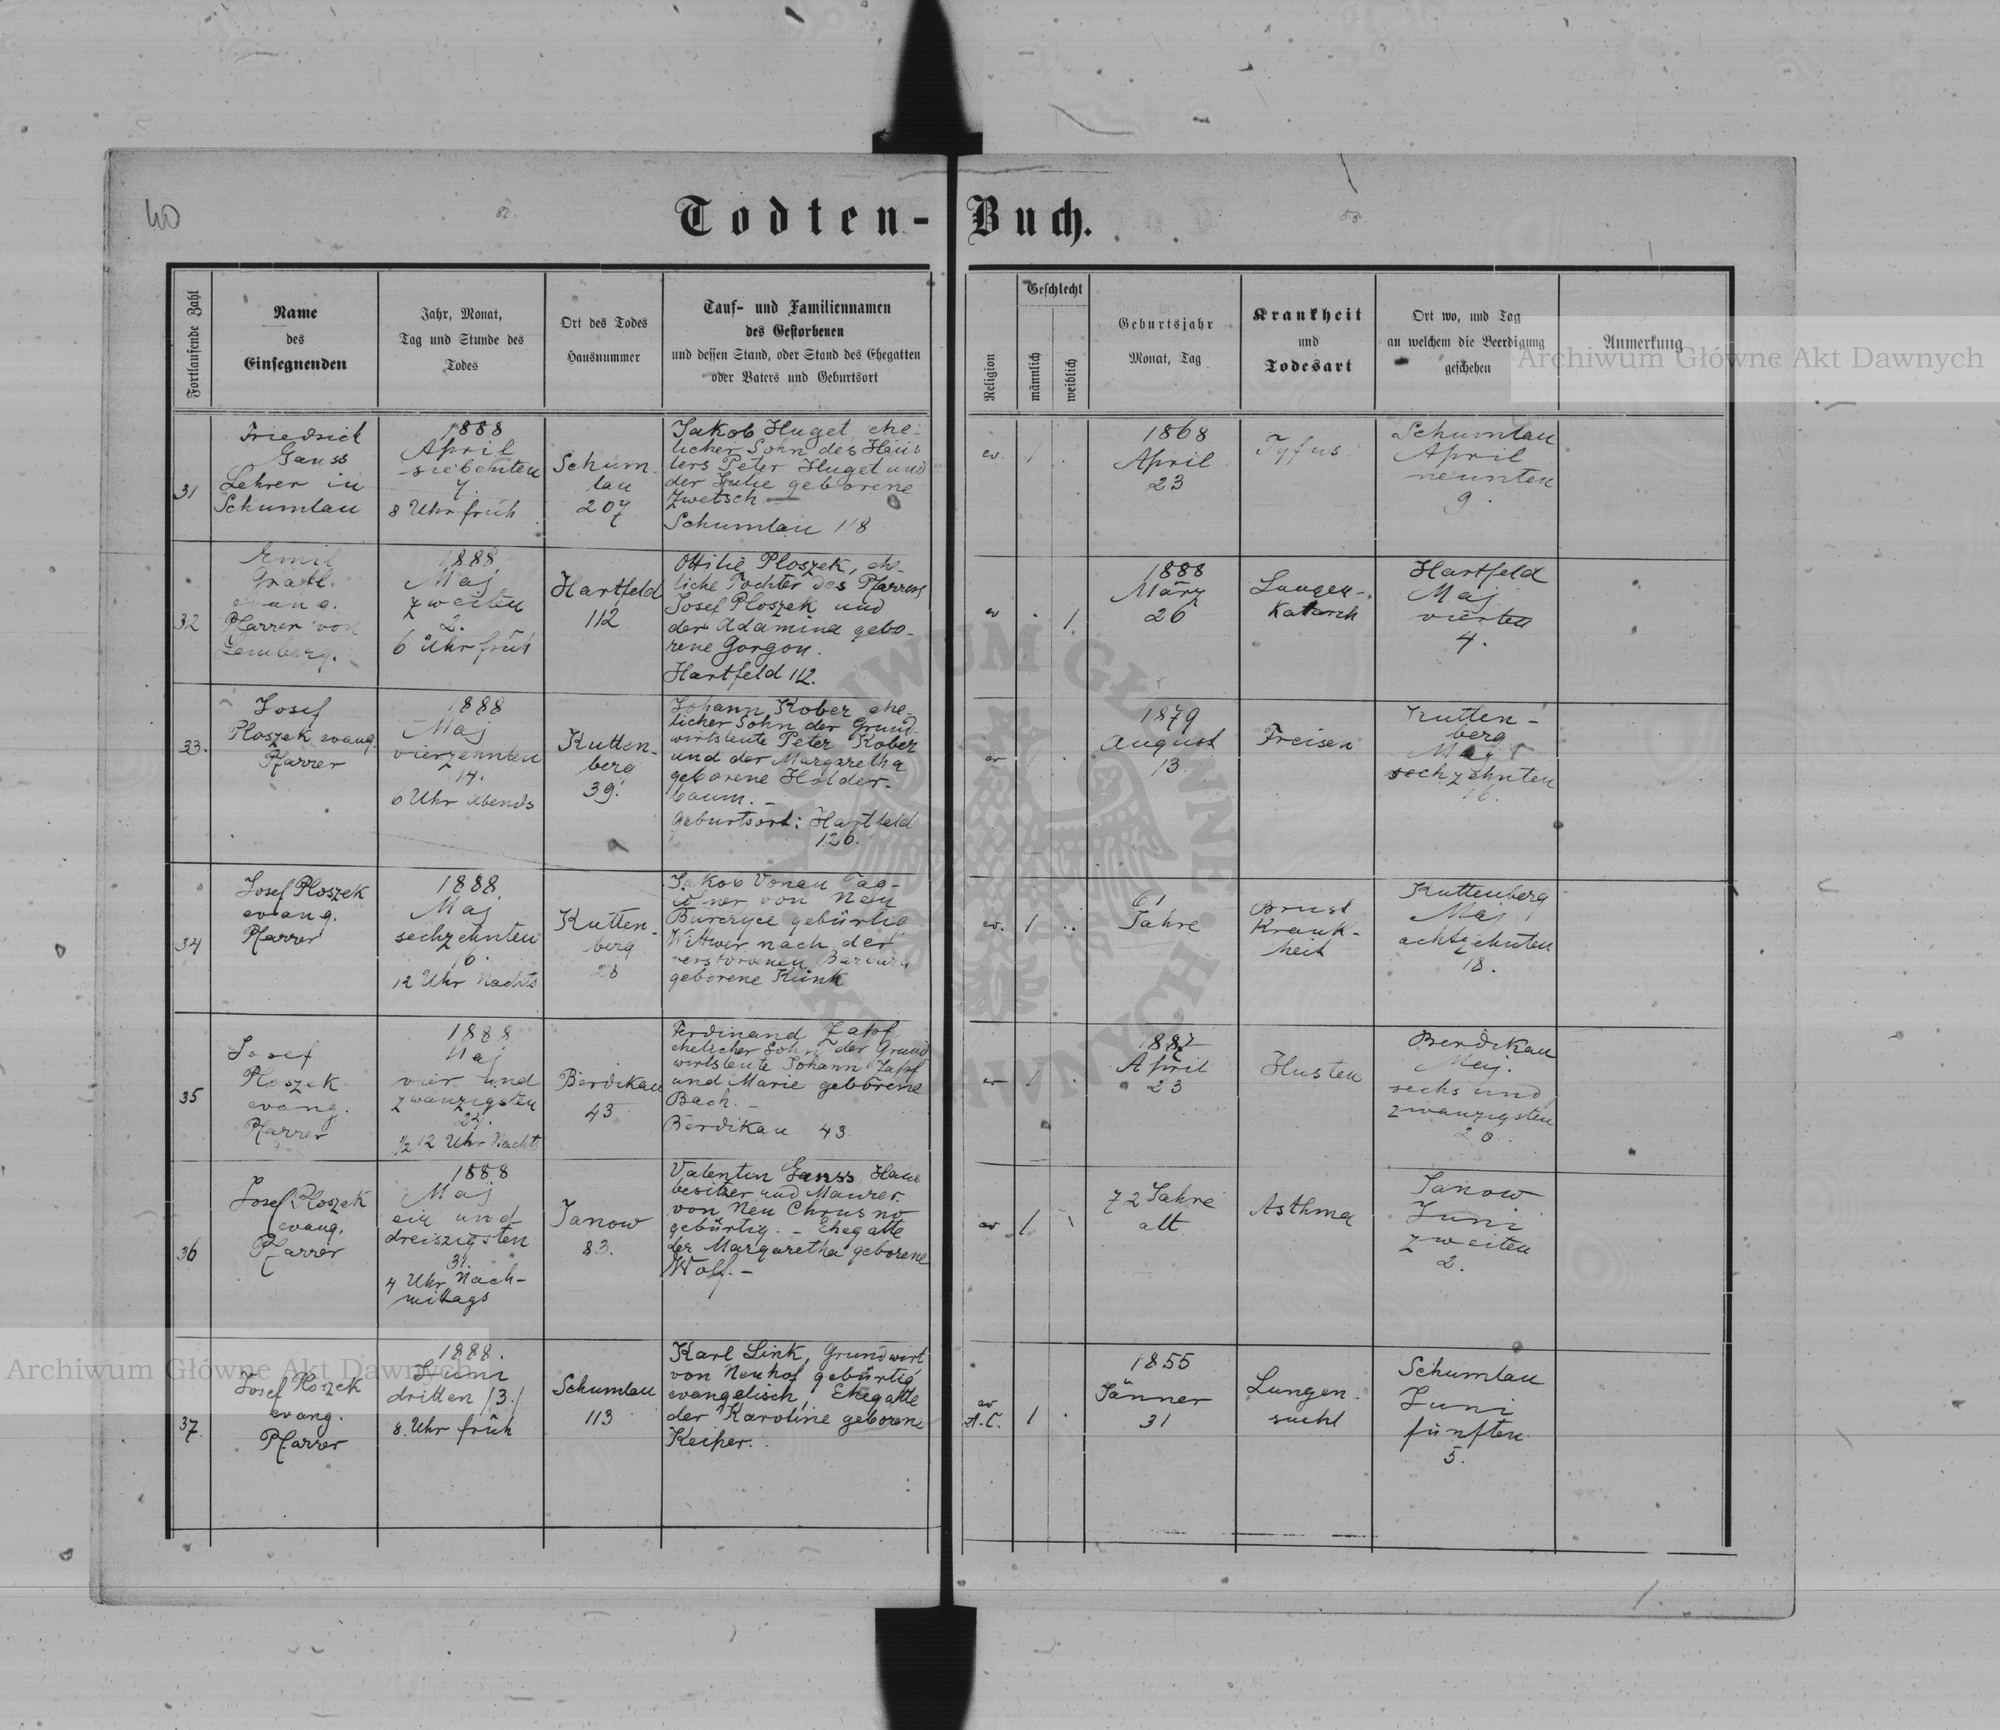 40
Todten-Buch.
Fortlaufende Zahl
Name
des
Einsegnenden
Jahr, Monat,
Tag und Stunde des
Todes
Ort des Todes
Hausnummer
Tauf- und Familiennamen
des Gestorbenen
und dessen Stand, oder Stand des Ehegatten
oder Vaters und Geburtsort
Religion
Geschlecht
männlich
weiblich
Geburtsjahr
Monat, Tag
Krankheit
und
Todesart
Ort wo, und Tag
an welchem die Beerdigung
geschehen
Anmerkung
Archiwum Główne Akt Dawnych
31
Friedrich
Gauss
Lehrer in
Schumlau
1888
April
siebenten
7.
8 Uhr früh
Schum-
lau
207
Jakob Huget ehe-
licher Sohn des Häus
lers Peter Huget und
der Julie geborene
Zwetsch —
Schumlau 118
ev.
1
.
1868
April
23
Tyfus
Schumlau
April
neunten
9.
32
Emil
evang.
Pfarrer von
Lemberg.
1888
Maj
zweiten
2.
6 Uhr früh
Hartfeld
112
Ottilie Ploszek, ehe-
liche Tochter des Pfarrers
Josef Ploszek und
der Adamina gebo-
rene Gorgon.
Hartfeld 112.
ev
.
1
1888
März
26
Lungen-
Katarrh
Hartfeld
Maj
vierten
4.
33.
Josef
Ploszek evang.
Pfarrer
1888
Maj
vierzehnten
14.
6 Uhr Abends
Kutten-
berg
39.
Johann Kober ehe-
licher Sohn der Grund-
wirtsleute Peter Kober
und der Margaretha
geborene Holder-
baum. —
Geburtsort: Hartfeld
120.
ev
1879
August
13.
Freisen
Kutten-
berg
Maj
sechzehnten
16.
34
Josef Ploszek
evang.
Pfarrer
1888
Maj
sechzehnten
16.
12 Uhr Nachts
Kutten-
berg
28
Jakob Vonau Tag-
löner von Neu
Burczyce gebürtig
Wittwer nach der
verstorbenen Barbara
geborene Kunk
ev.
1
61
Jahre
Brust
Krank-
heit
Kuttenberg
Maj
achtzehnten
18.
35
Josef
Ploszek
evang.
Pfarrer
1888
Maj
vier und
zwanzigsten
24.
1/2 12 Uhr Nachts
Berdikau
43
Ferdinand Zapf
ehelicher Sohn der Grund
wirtsleute Johann Zapf
und Marie geborene
Bach. —
Berdikau 43
ev
1
.
1887
April
23
Husten
Berdikau
Maj.
sechs und
zwanzigsten
26.
36
Josef Ploszek
evang.
Pfarrer
1888
Maj
ein und
dreiszigsten
31.
4 Uhr Nach-
mittags
Janow
83.
Valentin Ganss Haus
besitzer und Maurer.
von Neu Chrusno
gebürtig. — Ehegatte
der Margaretha geborene
Wolf. —
ev
1
72 Jahre
alt
Asthma
Janow
Juni
zweiten
2.
37.
Josef Ploszek
evang.
Pfarrer
1888.
Juni
dritten /3./
8 Uhr früh
Schumlau
113
Karl Link, Grundwirt
von Neuhof gebürtig
evangelisch, Ehegatte
der Karoline geborene
Keiper.
ev
A.C.
1
.
1855
Jänner
31
Lungen-
sucht
Schumlau
Juni
fünften
5.
Archiwum Główne Akt Dawnych